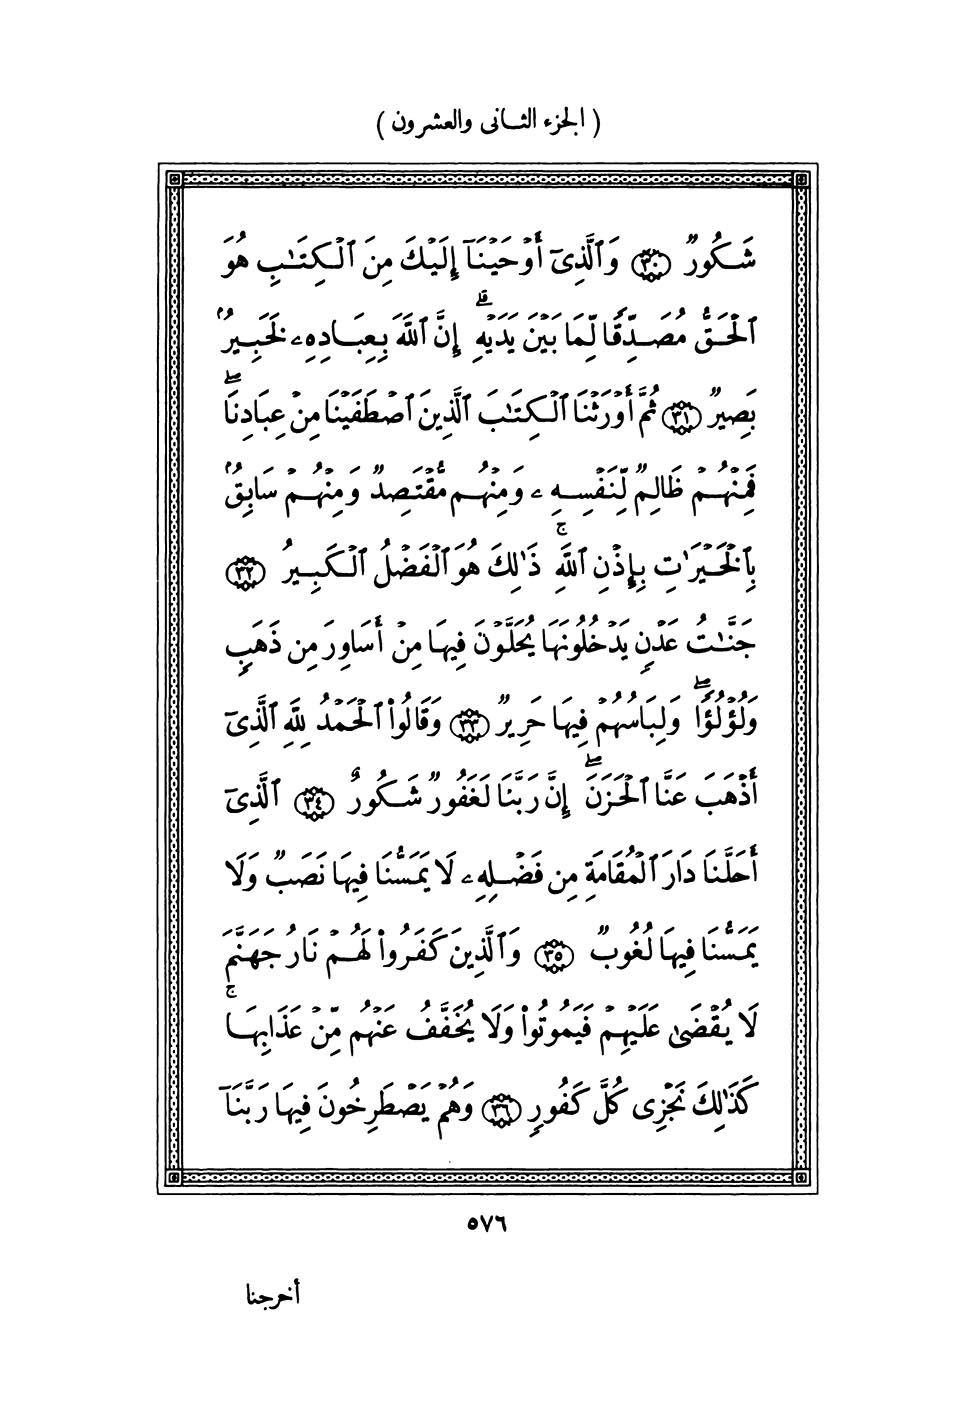 ( الجزء الثانى والعشرون )
شَكُورٌ ٣٠ وَٱلَّذِىٓ أَوْحَيْنَآ إِلَيْكَ مِنَ ٱلْكِتَٰبِ هُوَ
ٱلْحَقُّ مُصَدِّقًا لِّمَا بَيْنَ يَدَيْهِ ۗ إِنَّ ٱللَّهَ بِعِبَادِهِۦ لَخَبِيرٌۢ
بَصِيرٌ ٣١ ثُمَّ أَوْرَثْنَا ٱلْكِتَٰبَ ٱلَّذِينَ ٱصْطَفَيْنَا مِنْ عِبَادِنَا ۖ
فَمِنْهُمْ ظَالِمٌ لِّنَفْسِهِۦ وَمِنْهُم مُّقْتَصِدٌ وَمِنْهُمْ سَابِقٌۢ
بِٱلْخَيْرَٰتِ بِإِذْنِ ٱللَّهِ ۚ ذَٰلِكَ هُوَ ٱلْفَضْلُ ٱلْكَبِيرُ ٣٢
جَنَّٰتُ عَدْنٍ يَدْخُلُونَهَا يُحَلَّوْنَ فِيهَا مِنْ أَسَاوِرَ مِن ذَهَبٍ
وَلُؤْلُؤًا ۖ وَلِبَاسُهُمْ فِيهَا حَرِيرٌ ٣٣ وَقَالُوا۟ ٱلْحَمْدُ لِلَّهِ ٱلَّذِىٓ
أَذْهَبَ عَنَّا ٱلْحَزَنَ ۖ إِنَّ رَبَّنَا لَغَفُورٌ شَكُورٌ ٣٤ ٱلَّذِىٓ
أَحَلَّنَا دَارَ ٱلْمُقَامَةِ مِن فَضْلِهِۦ لَا يَمَسُّنَا فِيهَا نَصَبٌ وَلَا
يَمَسُّنَا فِيهَا لُغُوبٌ ٣٥ وَٱلَّذِينَ كَفَرُوا۟ لَهُمْ نَارُ جَهَنَّمَ
لَا يُقْضَىٰ عَلَيْهِمْ فَيَمُوتُوا۟ وَلَا يُخَفَّفُ عَنْهُم مِّنْ عَذَابِهَا ۚ
كَذَٰلِكَ نَجْزِى كُلَّ كَفُورٍ ٣٦ وَهُمْ يَصْطَرِخُونَ فِيهَا رَبَّنَآ
٥٧٦
أخرجنا